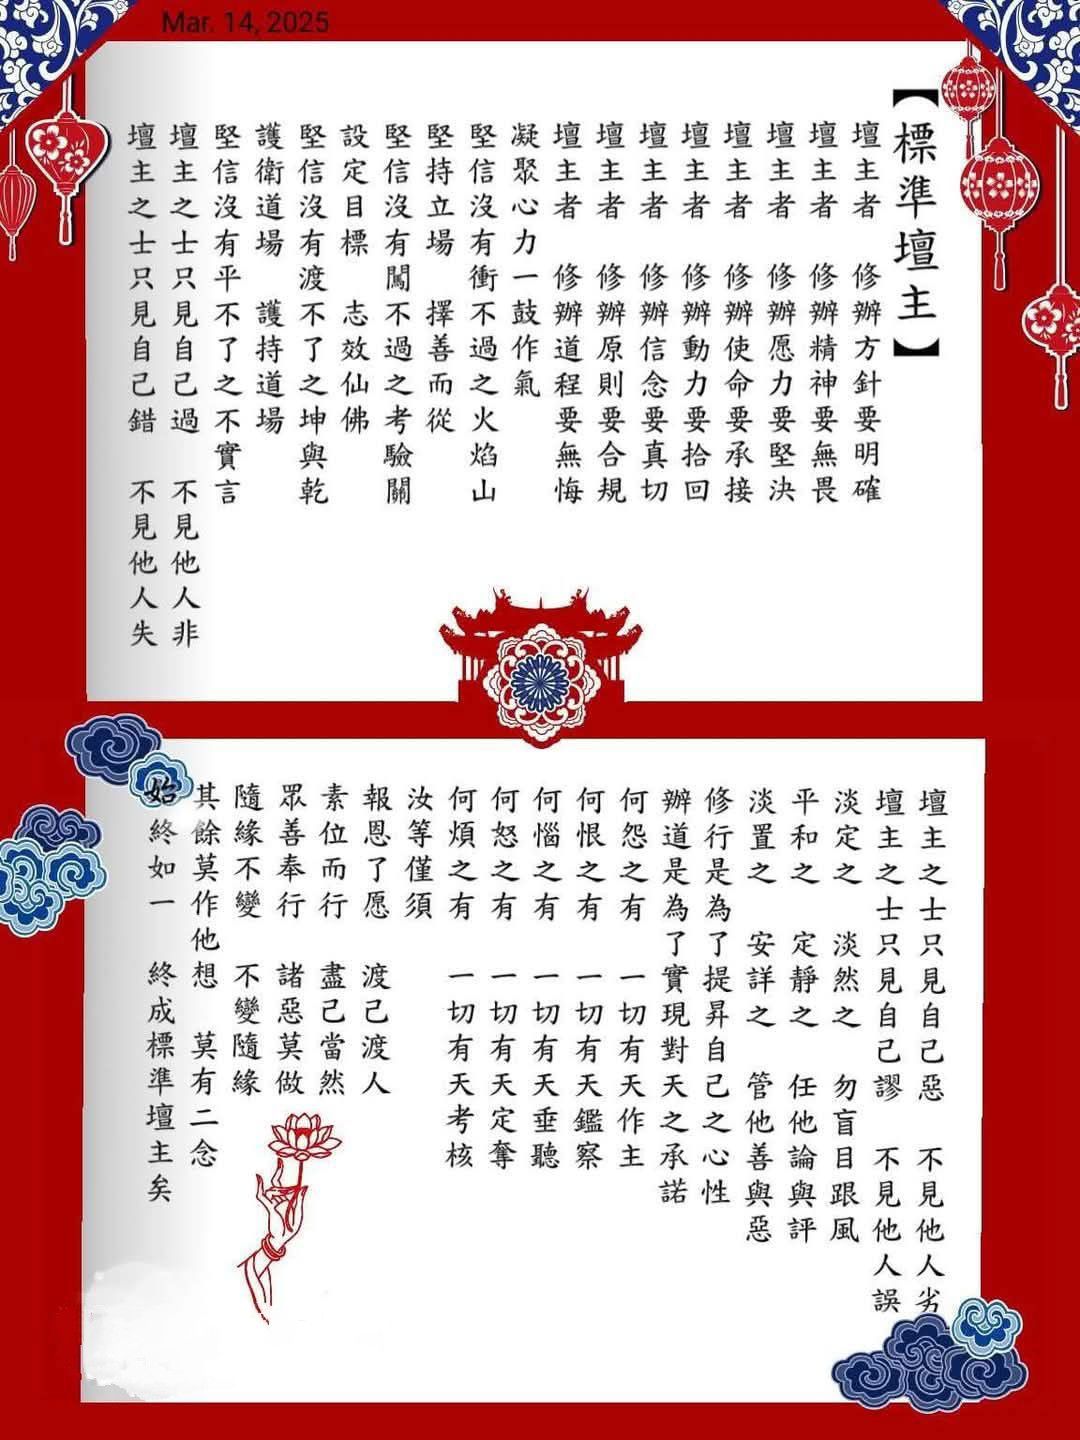 Mar. 14, 2025
【標準壇主】
壇主者 修辦方針要明確
壇主者 修辦精神要無畏
壇主者 修辦愿力要堅決
壇主者 修辦使命要承接
壇主者 修辦動力要拾回
壇主者 修辦信念要真切
壇主者 修辦原則要合規
壇主者 修辦道程要無悔
凝聚心力一鼓作氣
堅信沒有衝不過之火焰山
堅持立場 擇善而從
堅信沒有闖不過之考驗關
設定目標 志效仙佛
堅信沒有渡不了之坤與乾
護衛道場 護持道場
堅信沒有平不了之不實言
壇主之士只見自己過 不見他人非
壇主之士只見自己錯 不見他人失
壇主之士只見自己惡 不見他人劣
壇主之士只見自己謬 不見他人誤
淡定之 淡然之 勿盲目跟風
平和之 定靜之 任他論與評
淡置之 安詳之 管他善與惡
修行是為了提昇自己之心性
辦道是為了實現對天之承諾
何怨之有 一切有天作主
何恨之有 一切有天鑑察
何惱之有 一切有天垂聽
何怒之有 一切有天定奪
何煩之有 一切有天考核
汝等僅須
報恩了愿 渡己渡人
素位而行 盡己當然
眾善奉行 諸惡莫做
隨緣不變 不變隨緣
其餘莫作他想 莫有二念
始終如一 終成標準壇主矣